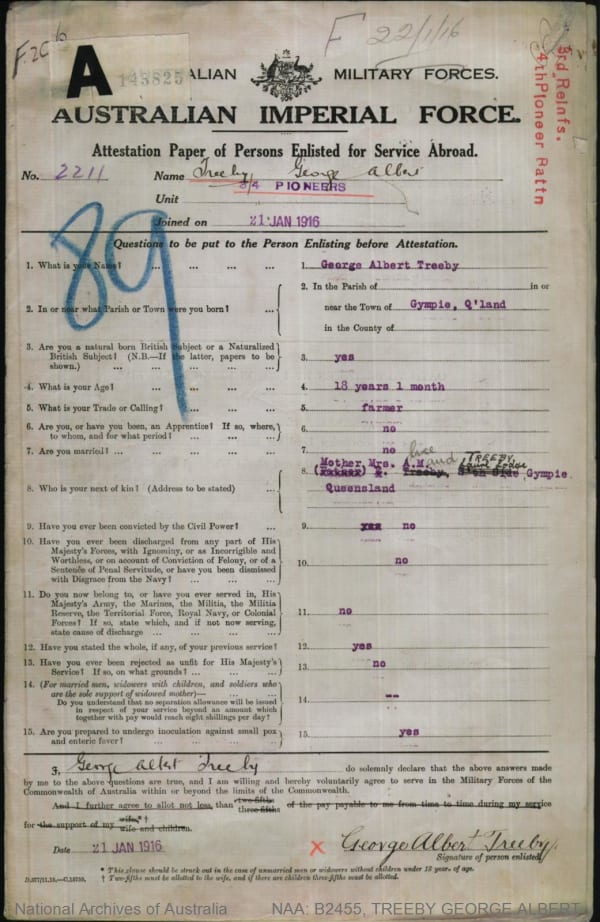 F.20
F 22/1/16
A
143825
ALIAN MILITARY FORCES.
AUSTRALIAN IMPERIAL FORCE.
3rd Reinfs.
4th Pioneer Battn
Attestation Paper of Persons Enlisted for Service Abroad.
No. 2211 Name Treeby George Albert
Unit 3/4 PIONEERS
Joined on 21 JAN 1916
89
Questions to be put to the Person Enlisting before Attestation.
1. What is your Name? ... ... ... ... 1. George Albert Treeby
2. In or near what Parish or Town were you born? ... 2. In the Parish of in or
near the Town of Gympie, Q'land
in the County of
3. Are you a natural born British Subject or a Naturalized
British Subject? (N.B.—If the latter, papers to be
shown.) ... ... ... ... 3. yes
4. What is your Age? ... ... ... ... 4. 18 years 1 month
5. What is your Trade or Calling? ... ... ... 5. farmer
6. Are you, or have you been, an Apprentice? If so, where,
to whom, and for what period? ... ... ... 6. no
7. Are you married? ... ... ... ... 7. no
8. Who is your next of kin? (Address to be stated) ... 8. Mother, Mrs. A.M. TREEBY,
Gympie
Queensland
9. Have you ever been convicted by the Civil Power? ... 9. yes no
10. Have you ever been discharged from any part of His
Majesty's Forces, with Ignominy, or as Incorrigible and
Worthless, or on account of Conviction of Felony, or of a
Sentence of Penal Servitude, or have you been dismissed
with Disgrace from the Navy? ... ... ... 10. no
11. Do you now belong to, or have you ever served in, His
Majesty's Army, the Marines, the Militia, the Militia
Reserve, the Territorial Force, Royal Navy, or Colonial
Forces? If so, state which, and if not now serving,
state cause of discharge ... ... ... 11. no
12. Have you stated the whole, if any, of your previous service? 12. yes
13. Have you ever been rejected as unfit for His Majesty's
Service? If so, on what grounds? ... ... ... 13. no
14. (For married men, widowers with children, and soldiers who
are the sole support of widowed mother)— ... ...
Do you understand that no separation allowance will be issued
in respect of your service beyond an amount which
together with pay would reach eight shillings per day? 14. --
15. Are you prepared to undergo inoculation against small pox
and enteric fever? ... ... ... ... 15. yes
I, George Albert Treeby do solemnly declare that the above answers made
by me to the above questions are true, and I am willing and hereby voluntarily agree to serve in the Military Forces of the
Commonwealth of Australia within or beyond the limits of the Commonwealth.
And I further agree to allot not less than two-fifths three-fifths of the pay payable to me from time to time during my service
for the support of my wife*† wife and children.
Date 21 JAN 1916 X George Albert Treeby
Signature of person enlisted.
* This clause should be struck out in the case of unmarried men or widowers without children under 18 years of age.
† Two-fifths must be allotted to the wife, and if there are children three-fifths must be allotted.
National Archives of Australia NAA: B2455, TREEBY GEORGE ALBERT